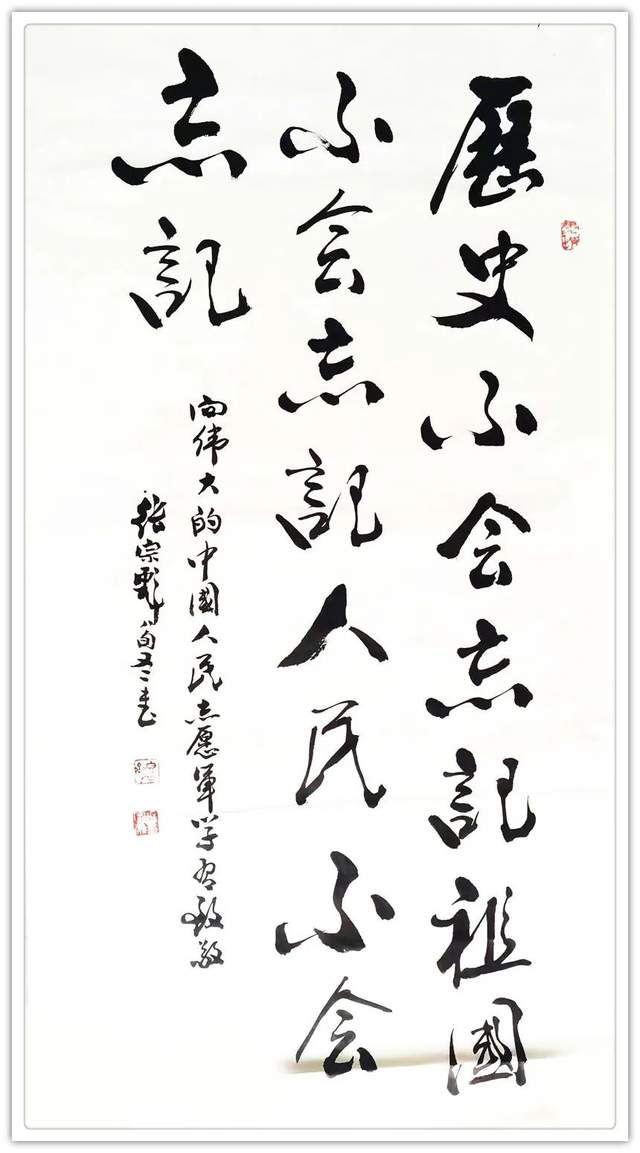 歷史不会忘記祖國
不会忘記人民不会
忘記
向伟大的中國人民志愿軍学習致敬
張宗彪八旬又二书